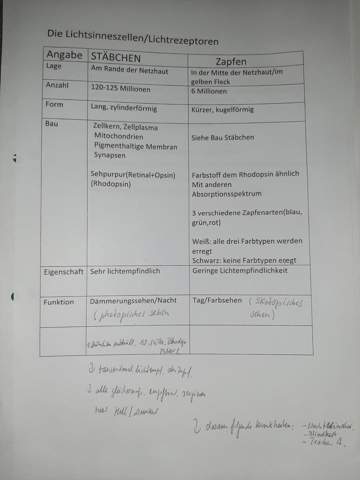 Die Lichtsinneszellen/Lichtrezeptoren
Angabe STÄBCHEN Zapfen
Lage Am Rande der Netzhaut In der Mitte der Netzhaut/im
gelben Fleck
Anzahl 120-125 Millionen 6 Millionen
Form Lang, zylinderförmig Kürzer, kugelförmig
Bau Zellkern, Zellplasma
Mitochondrien Siehe Bau Stäbchen
Pigmenthaltige Membran
Synapsen
Sehpurpur(Retinal+Opsin) Farbstoff dem Rhodopsin ähnlich
(Rhodopsin) Mit anderen
Absorptionsspektrum
3 verschiedene Zapfenarten(blau,
grün,rot)
Weiß: alle drei Farbtypen werden
erregt
Schwarz: keine Farbtypen eregt
Eigenschaft Sehr lichtempfindlich Geringe Lichtempfindlichkeit
Funktion Dämmerungssehen/Nacht Tag/Farbsehen (Skotopisches
(photopisches sehen sehen)
Hell/Dunkel